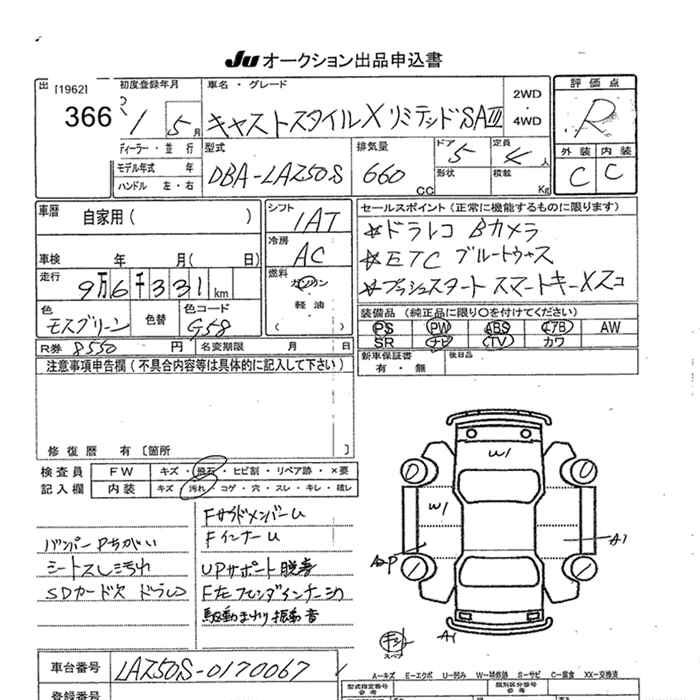 Ju オークション出品申込書
出 [1962] 初度登録年月 車名・グレード 2WD 評価点
366 1 5月 キャストスタイルX リミテッドSAⅢ ・4WD R
ディーラー・並行 型式 排気量 ドア 5 定員 4人 外装 内装
モデル年式 年 DBA-LA250S 660 形状 積載 C C
ハンドル 左・右 CC Kg
車歴 自家用( ) シフト IAT セールスポイント(正常に機能するものに限ります)
冷房 AC ☆ドラレコ Bカメラ
車検 年 月( 日) ☆ETC ブルートゥース
走行 9万6千331km 燃料 ガソリン ☆プッシュスタート スマートキーX2コ
軽油
色 色替 色コード ( ) 装備品(純正品に限り○を付けてください)
モスグリーン G58 PS PW ABS エアB AW
R券 8550 円 名変期限 月 日 SR ナビ TV カワ
注意事項申告欄(不具合内容等は具体的に記入して下さい) 新車保証書 後日品
有・無
修復歴 有〔箇所
検査員 FW キズ・飛石・ヒビ割・リペア跡・×要
記入欄 内装 キズ・汚れ・コゲ・穴・スレ・キレ・破レ
W1
W1
A1
A1
FサイドメンバーU
バンパーPちがい FインナーU
シートスレ汚れ UPサポート脱着
SDカード欠 ドラレコ F左フェンダインナー欠
駆動まわり振動音
キット
スペア
車台番号 LA250S-0170067
登録番号
A-キズ E-エクボ U-凹み W-補修跡 S-サビ C-腐食 XX-交換済
型式指定番号 類別区分番号
参考 参考